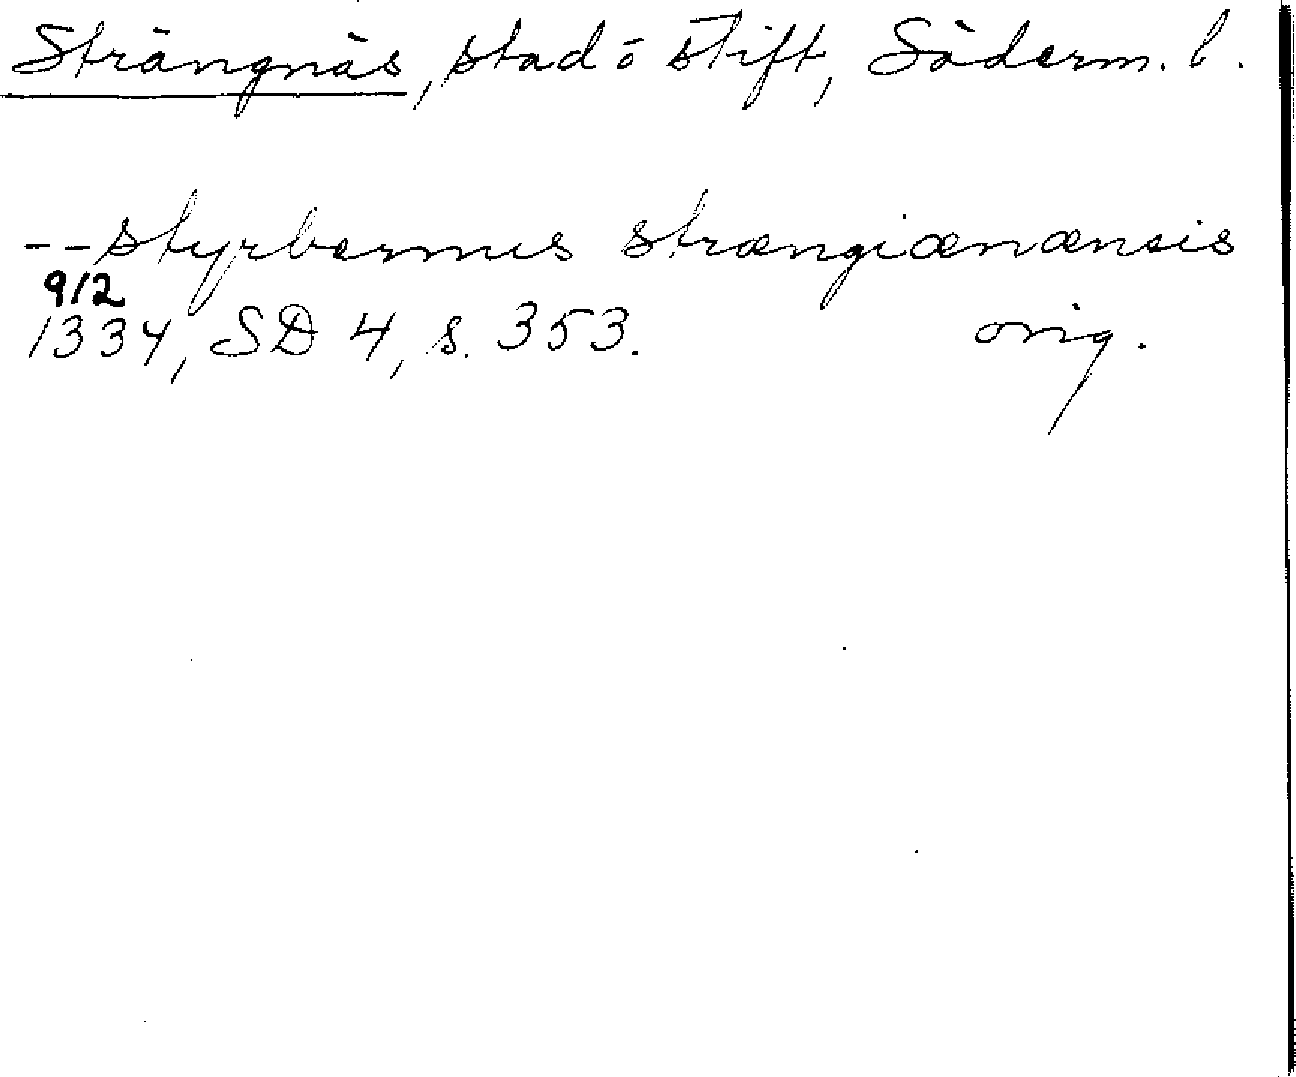 Strängnäs, stad o stift, Söderm. l.
--styrbernus strængiænænsis
9/2
1334, SD 4, s. 353. orig.